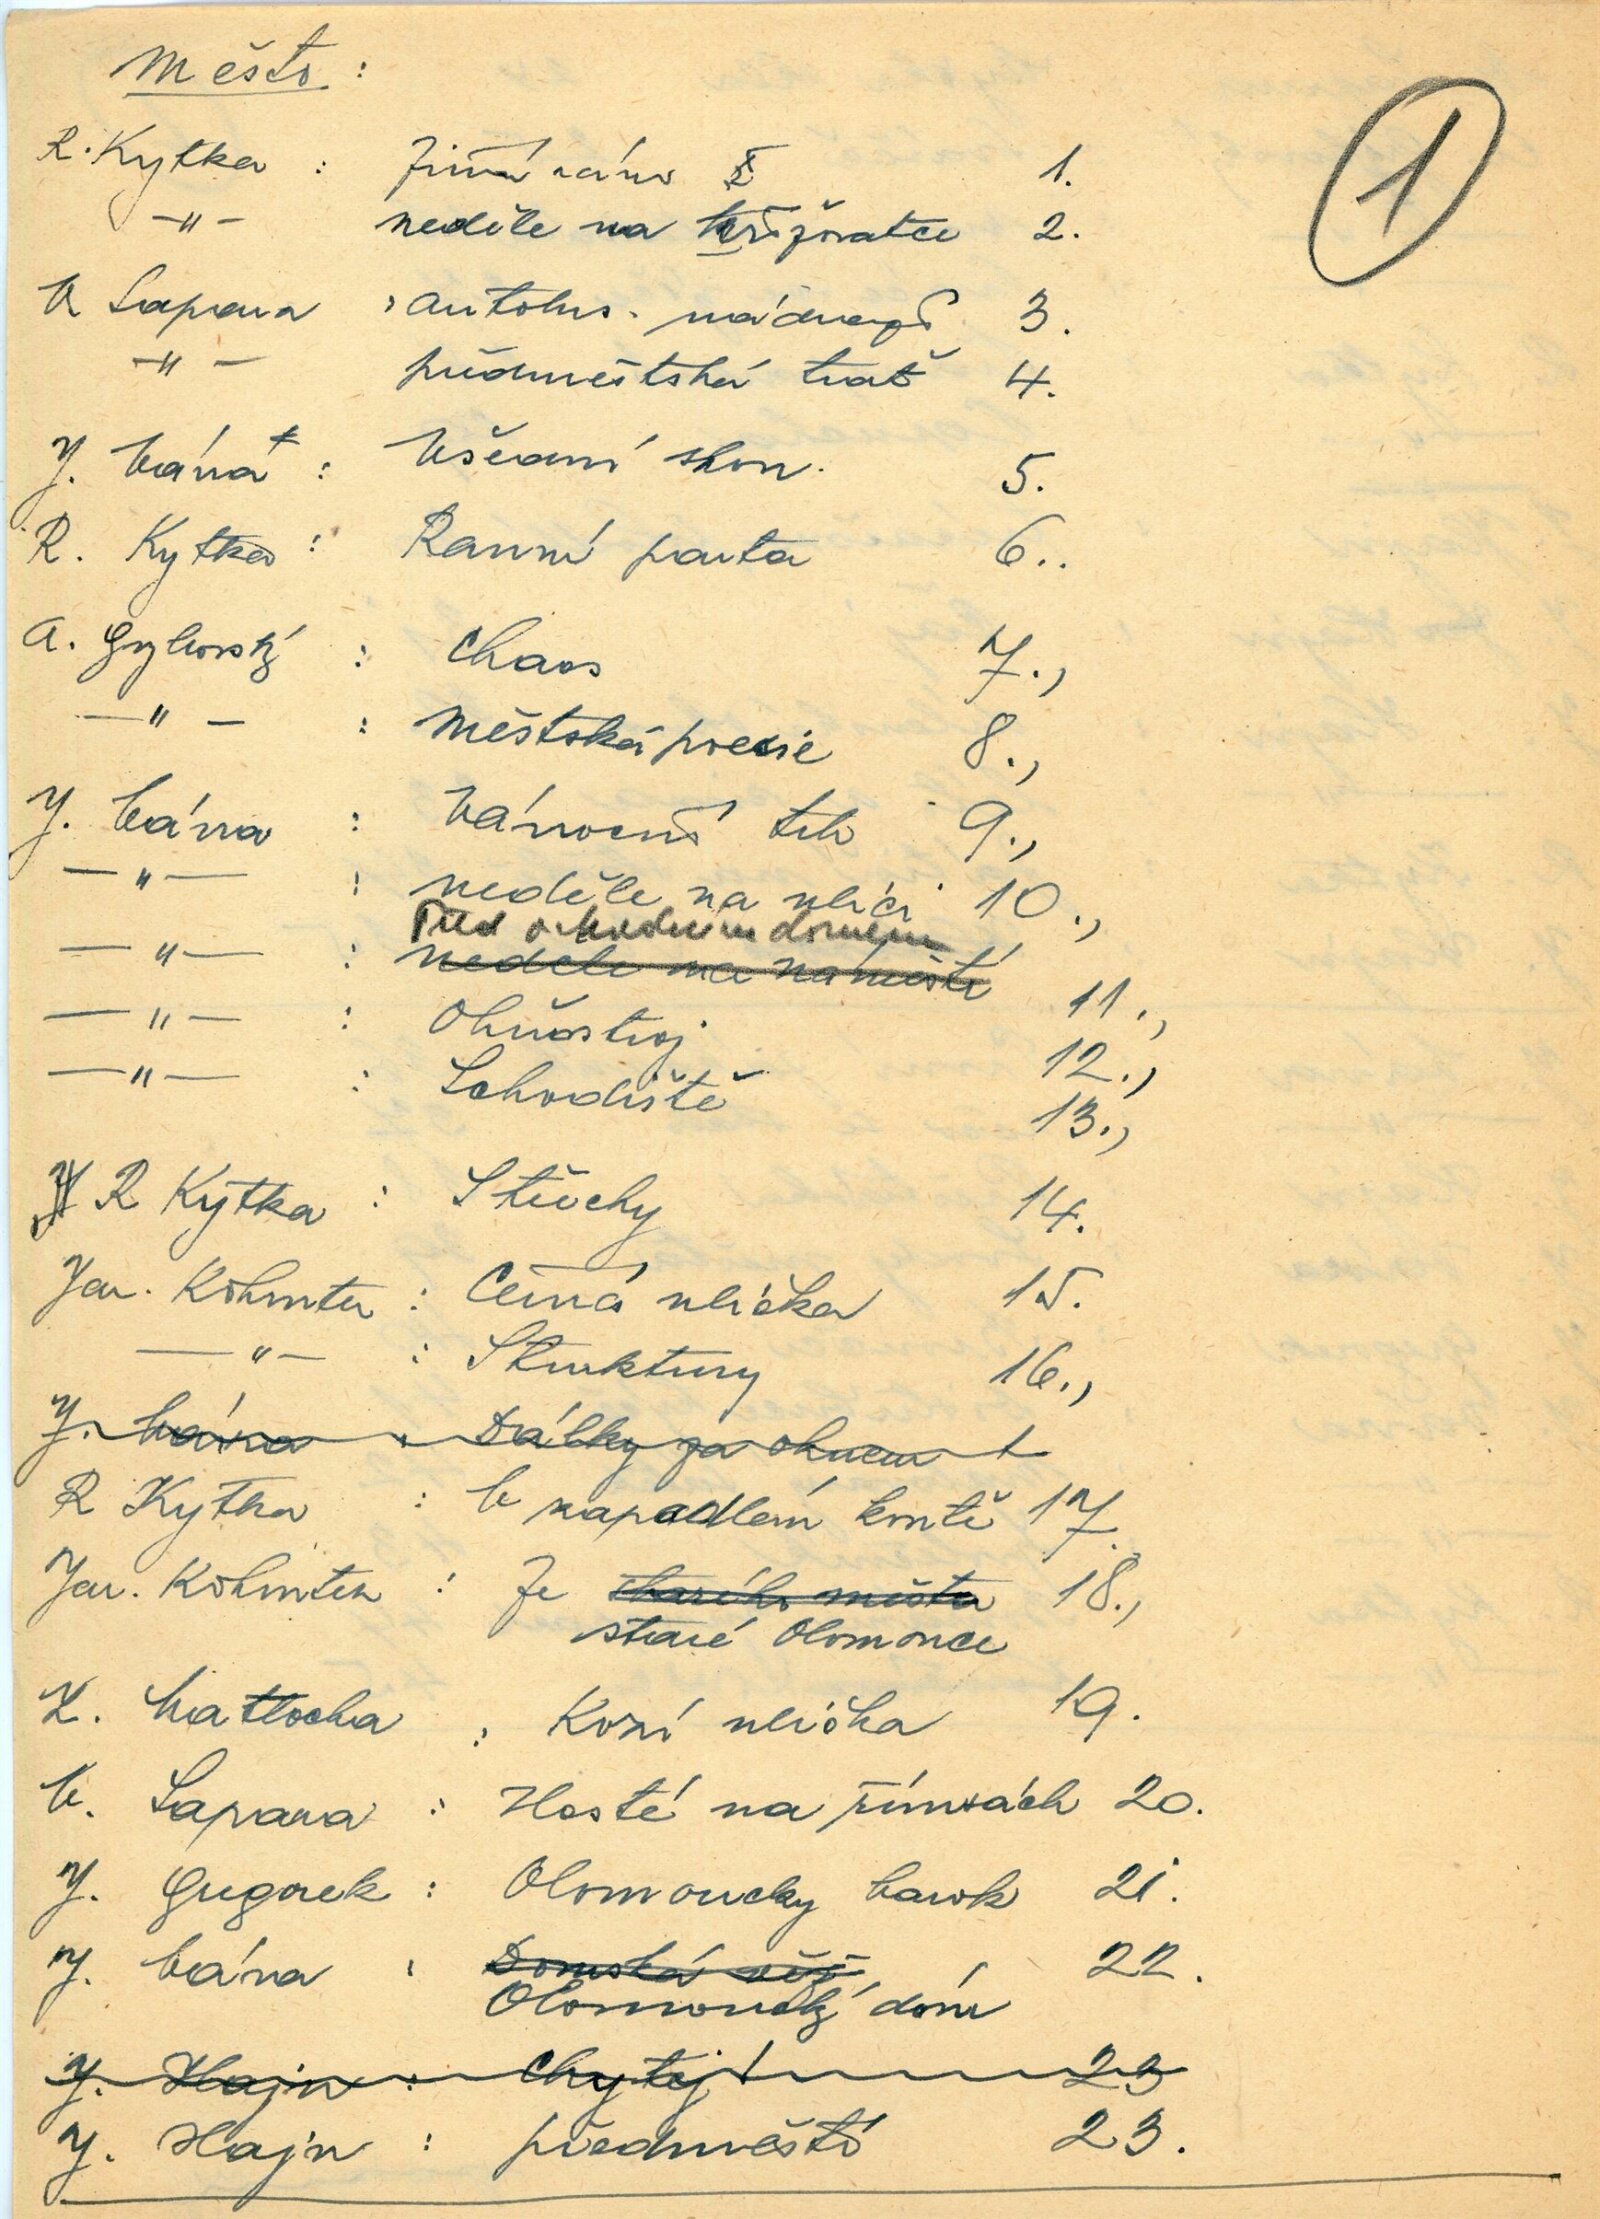 Město :
1
R. Kytka : Zimní ráno 1.
—"— neděle na křižovatce 2.
V Sapara : autobus. nádraží 3.
—"— předměstská trať 4.
J. Vána : Všední shon. 5.
R. Kytka : Ranní pouta 6..
A. Gryborský : Chaos 7.,
—"— : Městská poesie 8.,
J. Vána : Vánoční trh 9.,
—"— : neděle na ulici 10.,
Před obchodním domem
—"— : neděle na náměstí 11.,
—"— : Ohňostroj 12.,
—"— : Schodiště 13.,
R Kytka : Střechy 14.
Jar. Kohoutek : Černá ulička 15.
—"— : Struktury 16.,
J. Vána : Dálky za oknem
R Kytka : V zapadlém koutě 17.
Jar. Kohoutek : Ze starého města 18.,
staré Olomouce
Z. Matlocha : Kozí ulička 19.
V. Sapara : Hosté na římsách 20.
J. Gregorek : Olomoucky barok 21.
J. Vána : Domská věž 22.
Olomoucký dóm
J. Hajn : Chytej! 23
J. Hajn : předměstí 23.